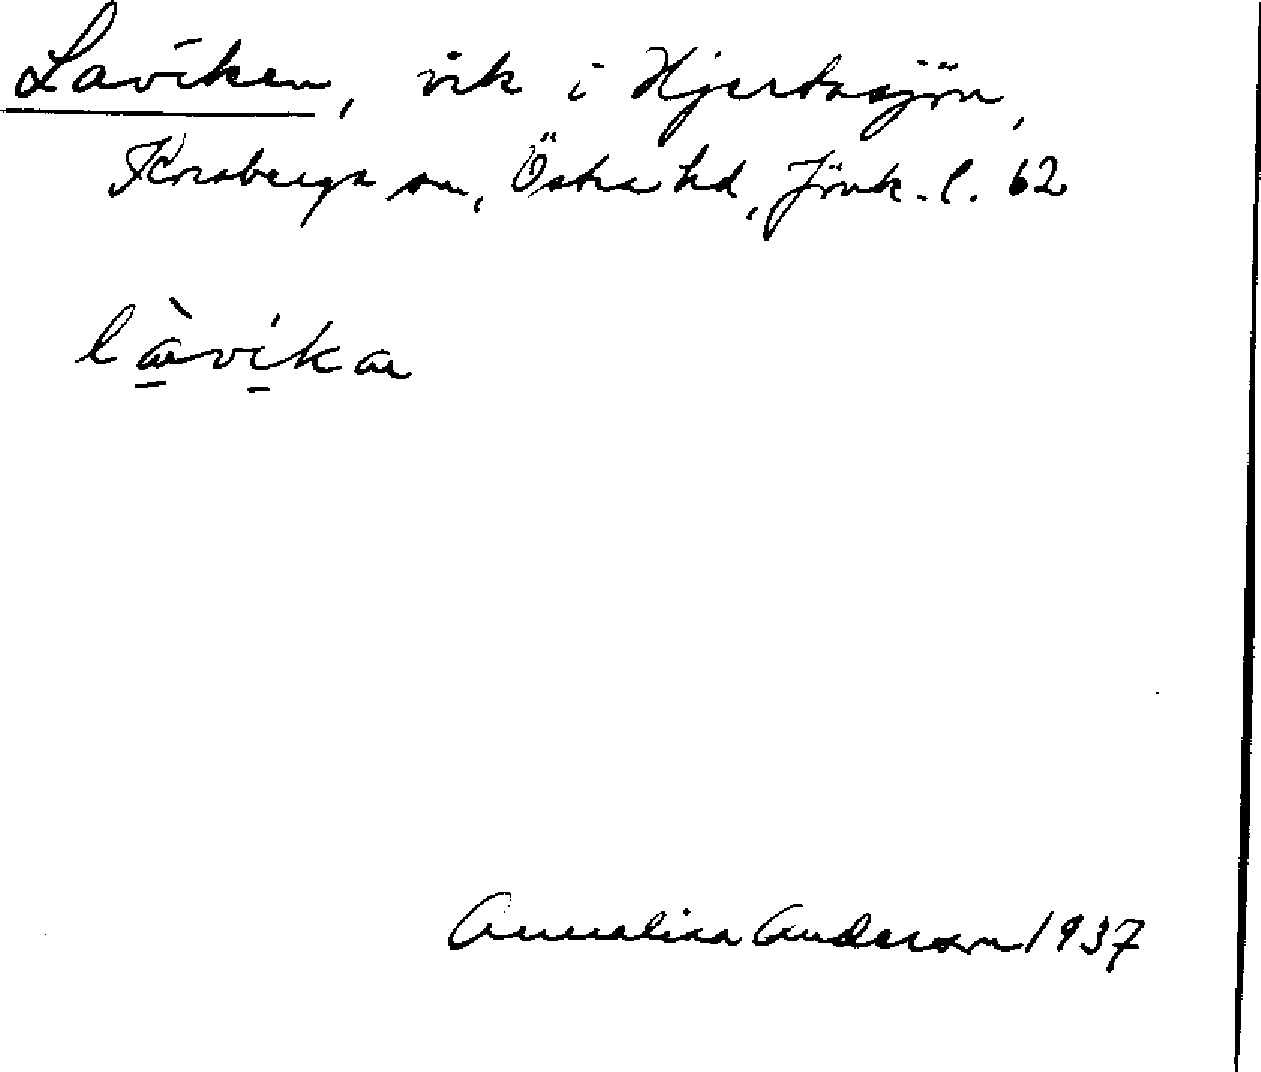 Laviken, vik i Hjertasjön,
Korsberga sn, Östra hd, Jönk. l. 62
làvika
Annalisa Anderson 1937